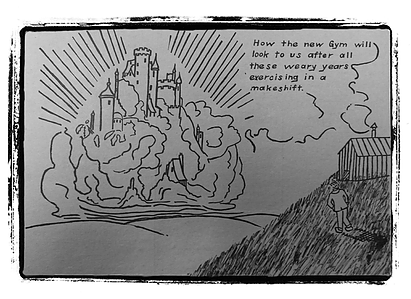 How the new Gym will
look to us after all
these weary years
exercising in a
makeshift.